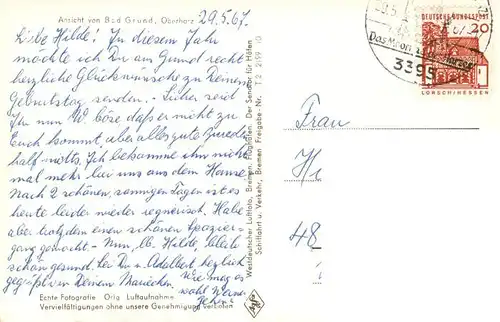 Ansicht von Bad Grund, Oberharz
29.5.67.
Liebe Hilde! In diesem Jahr
möchte ich Dir aus Grund recht
herzliche Glückwünsche zu Deinem
Geburtstag senden. Sicher seid
Ihr nun böse, daß er nicht zu
Euch kommt, aber alles gute
halb nichts. Ich bekomme ihn nicht
mal mehr bei uns aus dem Hause.
Nach 2 schönen, sonnigen Tagen ist es
heute leider wieder regnerisch. Habe
aber trotzdem einen schönen Spazier-
gang gemacht. – Nun, lb. Hilde, bleib
schön gesund. Sei Du u. Adalbert herzlich
gegrüßt von Deinem Mariechen.
Wie mag es
wohl Werner
gehen?
Echte Fotografie Orig. Luftaufnahme
Vervielfältigungen ohne unsere Genehmigung verboten
Westdeutscher Luftfoto, Bremen, Flughafen. Der Senator für Häfen
Schiffahrt u. Verkehr, Bremen Freigabe-Nr. T 2 6159 10
DEUTSCHE BUNDESPOST
20
LORSCH/HESSEN
3395
Frau
Hi
48